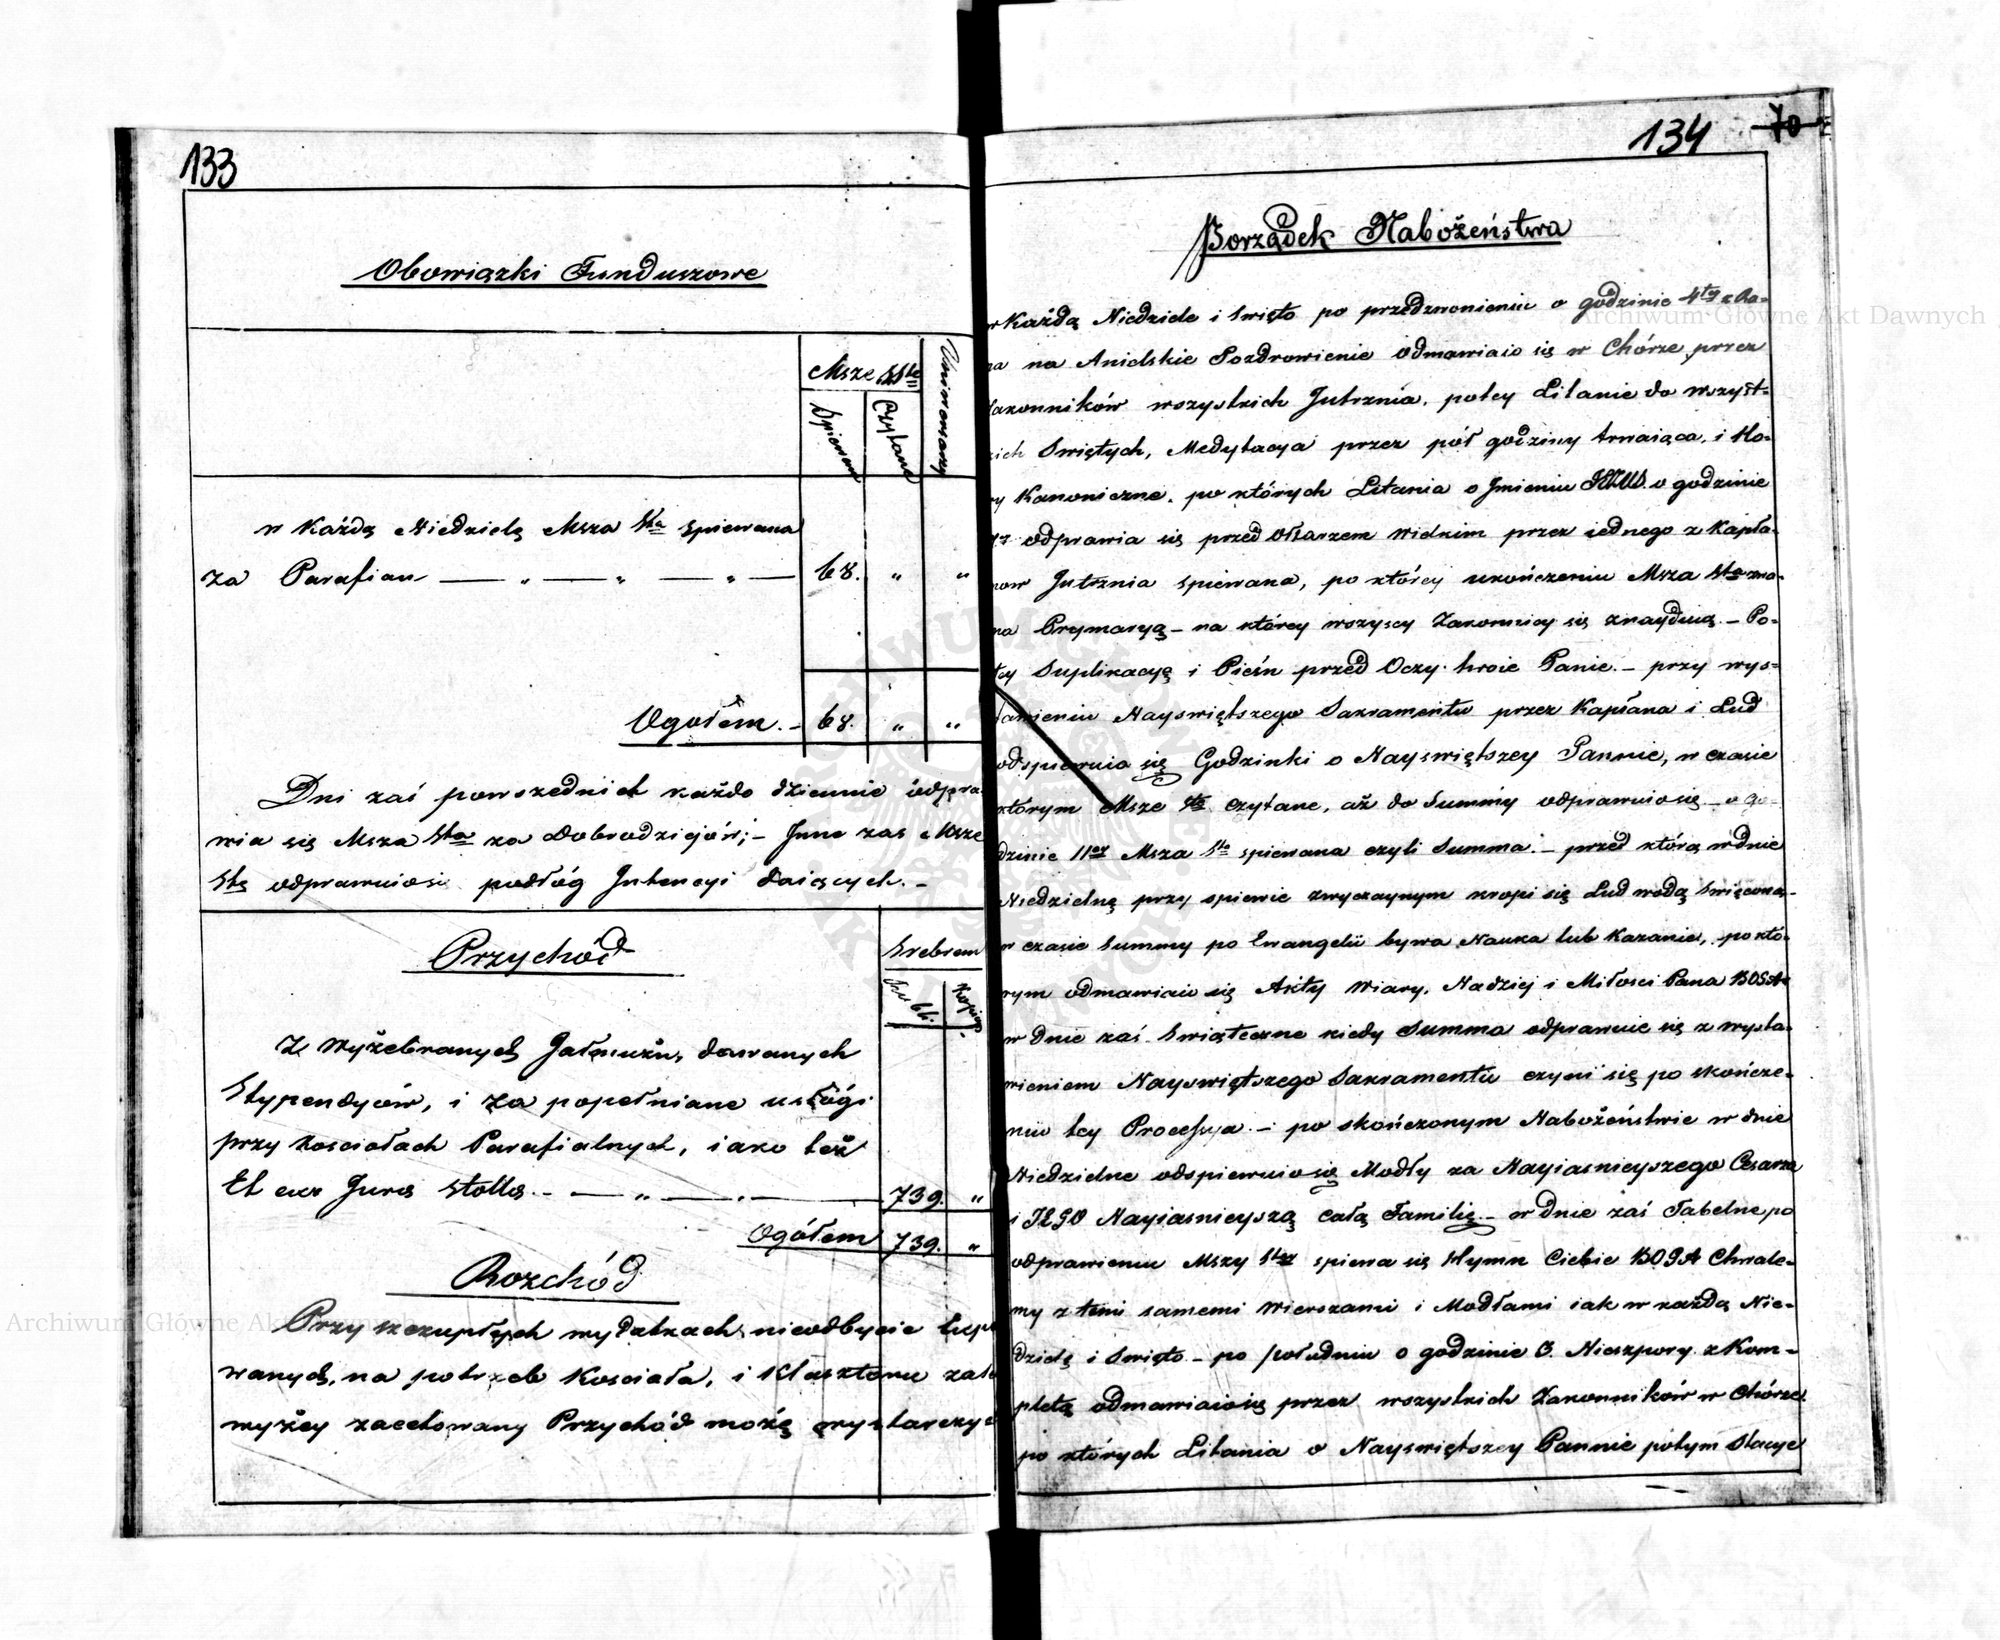 133
Obowiązki Funduszowe
Msze Ste
Spiewane
Czytane
w Każdą Niedzielę Msza Sta spiewana
za Parafian — „ — „ — „ — 68. „ „
Ogołem. - 68. „ „
Dni zaś powszednich każdo dziennie odpra
wia się Msza Sta za Dobrodziejów; - Jnne zas Msze
Ste odprawuiosi podłóg Jntencyi daiących. -
Przychód
Srebrem
Rubli.
Kopiej.
Z wyżebranych Jałmużn, dawanych
Stypendyów, i za popełniane usługi
przy kosciołach Parafialnych, iako też
Et eux Jura Stolla. - — „ — „ — 739. „
Ogółem 739. „
Rozchód
Przy szczupłych wydatkach nieodbycie
wanych, na potrzeb Kosciała, i Klasztoru
wyżey zacetowany Przychód możę wystarczyć
134 70
Porządek Nabożeństwa
w Każdą Niedziele i Swięto po przedzwonieniu o godzinie 4tey zRa-
na na Anielskie Pozdrowienie odmawiaio się w Chórze przez
Zakonników wszystkich Jutrznia, potey Litanie do Wszyst-
kich Swiętych, Medytacya przez pół godziny trwaiąca, i Ho-
ry Kanoniczne, po których Litania o Jmieniu JEZUS. o godzinie
odprawia się przed Ołtarzem Wielkim przez iednego z Kapła-
now Jutrznia spiewana, po którey ukończeniu Msza Sta zwa-
na Prymaryą - na którey wszyscy Zakonnicy się znayduią. - Po-
tey Suplikacyę i Pieśn przed Oczy twoie Panie. - przy wys-
tawieniu Nayswiętszego Sakramentu przez Kapłana i Lud
odspiewuio się Godzinki o Nayswiętszey Pannie, w czasie
którym Msze Ste czytane, aż do Summy odprawuiosię - o go-
dzinie 11ey Msza Sta spiewana czyli Summa. - przed którą w dnie
Niedzielną przy spiewie zwyczaynym kropi się Lud wodą Swięconą -
w czasie Summy po Ewangelii bywa Nauka lub Kazanie, po któ-
rym odmawiaio się Akty Wiary, Nadziej i Miłosci Pana BOGA
w Dnie zaś Swiąteczne kiedy Summa odprawuie się z wysta-
wieniem Nayswiętszego Sakramentu czyni się po skończe-
niu tey Processya - po skończonym Nabożeństwie w dnie
Niedzielne odspiewuio się Modły za Nayiasnieyszego Cesarza
i JEGO Nayiasnieyszą całą Familię. - w Dnie zaś Tabelne po
odprawieniu Mszy Stey spiewa się Hymn Ciebie BOGA Chwale-
my z temi samemi Wierszami i Modłami iak w każdą Nie-
dzielę i Swięto - po południu o godzinie 3. Nieszpory z Kom-
pletą odmawiaiosię przez wszystkich Zakonników w Chórze
po których Litania o Nayswiętszey Pannie potym Stacye
Archiwum Główne Akt Dawnych
Archiwum Główne Akt Dawnych